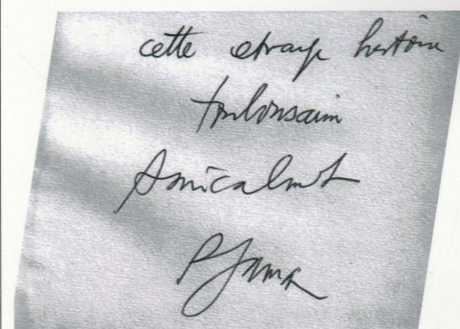 cette etrange histoire
toulousaine
Amicalement